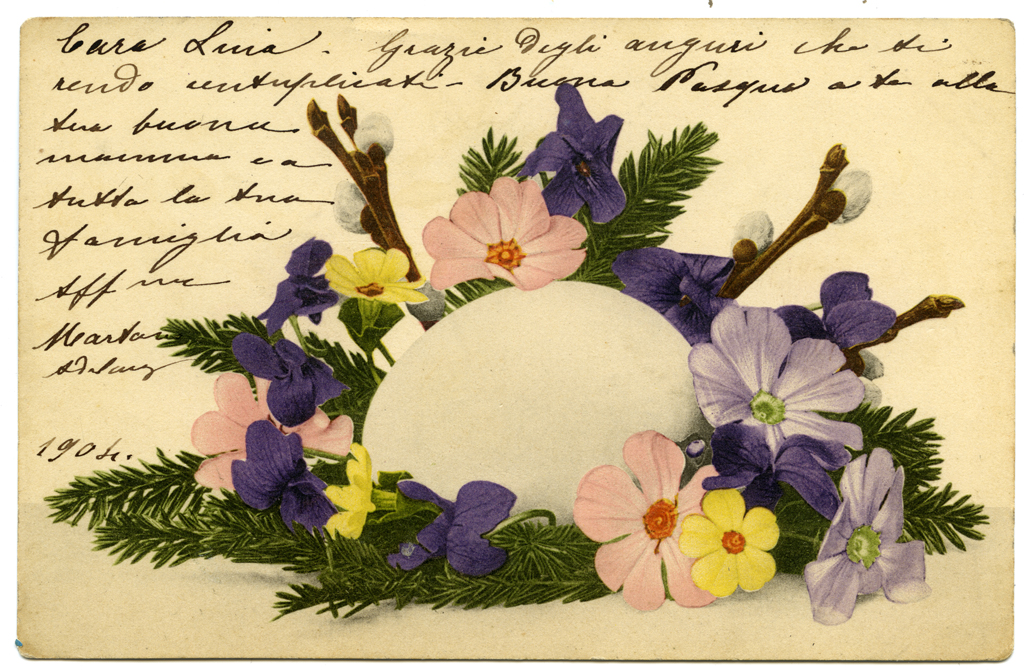 Cara Livia - Grazie degli auguri che ti
rendo centuplicati - Buona Pasqua a te alla
tua buona
mamma e a
tutta la tua
famiglia
Aff me
1904.